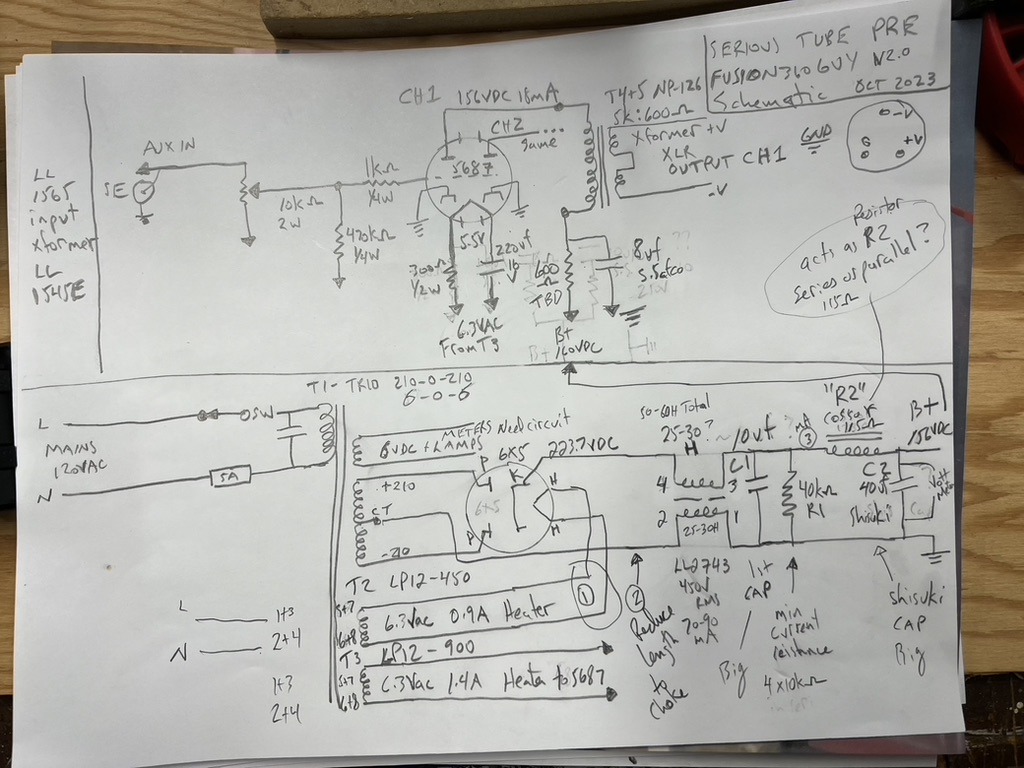 SERIOUS TUBE PRE
FUSION360GUY V2.0
Schematic OCT 2023
CH1 156VDC 18mA
CH2
same ...
T4+5 NP-126
5k:600Ω
Xformer +V
XLR
OUTPUT CH1
-V
GND
-V
+V
S
LL
1565
input
xformer
LL
1545E
AUX IN
SE
10kΩ
2W
1kΩ
1/4W
470kΩ
1/4W
5687
5.5V
300Ω
1/2W
220uf
16
6.3VAC
From T3
600
Ω
TBD
8uf
B+
160VDC
Resistor
acts as R2
Series or parallel?
115Ω
T1- TRIO 210-0-210
6-0-6
L
SW
MAINS
120VAC
N
5A
METERS Need circuit
6VDC + LAMPS
+210
CT
-210
P
6X5
K
H
6X5
P
H
223.7VDC
50-60H Total
25-30?
H
4
3
2
1
25-30H
~10uf
C1
?mA
3
40kΩ
R1
"R2"
cossar
115Ω
B+
156VDC
C2
40uf
Shisuki
Volt
Meter
T2 LP12-450
5+7
6.3Vac 0.9A Heater
6+8
1
T3
LP12-900
5+7
6.3Vac 1.4A Heater to 5687
6+8
2
Reduce
length
to
choke
LL2743
450V
RMS
70-90
mA
1st
CAP
Big
min
current
reistance
4x10kΩ
shisuki
CAP
Big
L
1+3
N
2+4
1+3
2+4